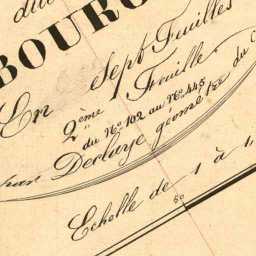 du
BOURG
En Sept Feuilles
2ème Feuille
du No. 102 au No. 445
par Derlaye géomètre du C
Echelle de 1 à 1
50